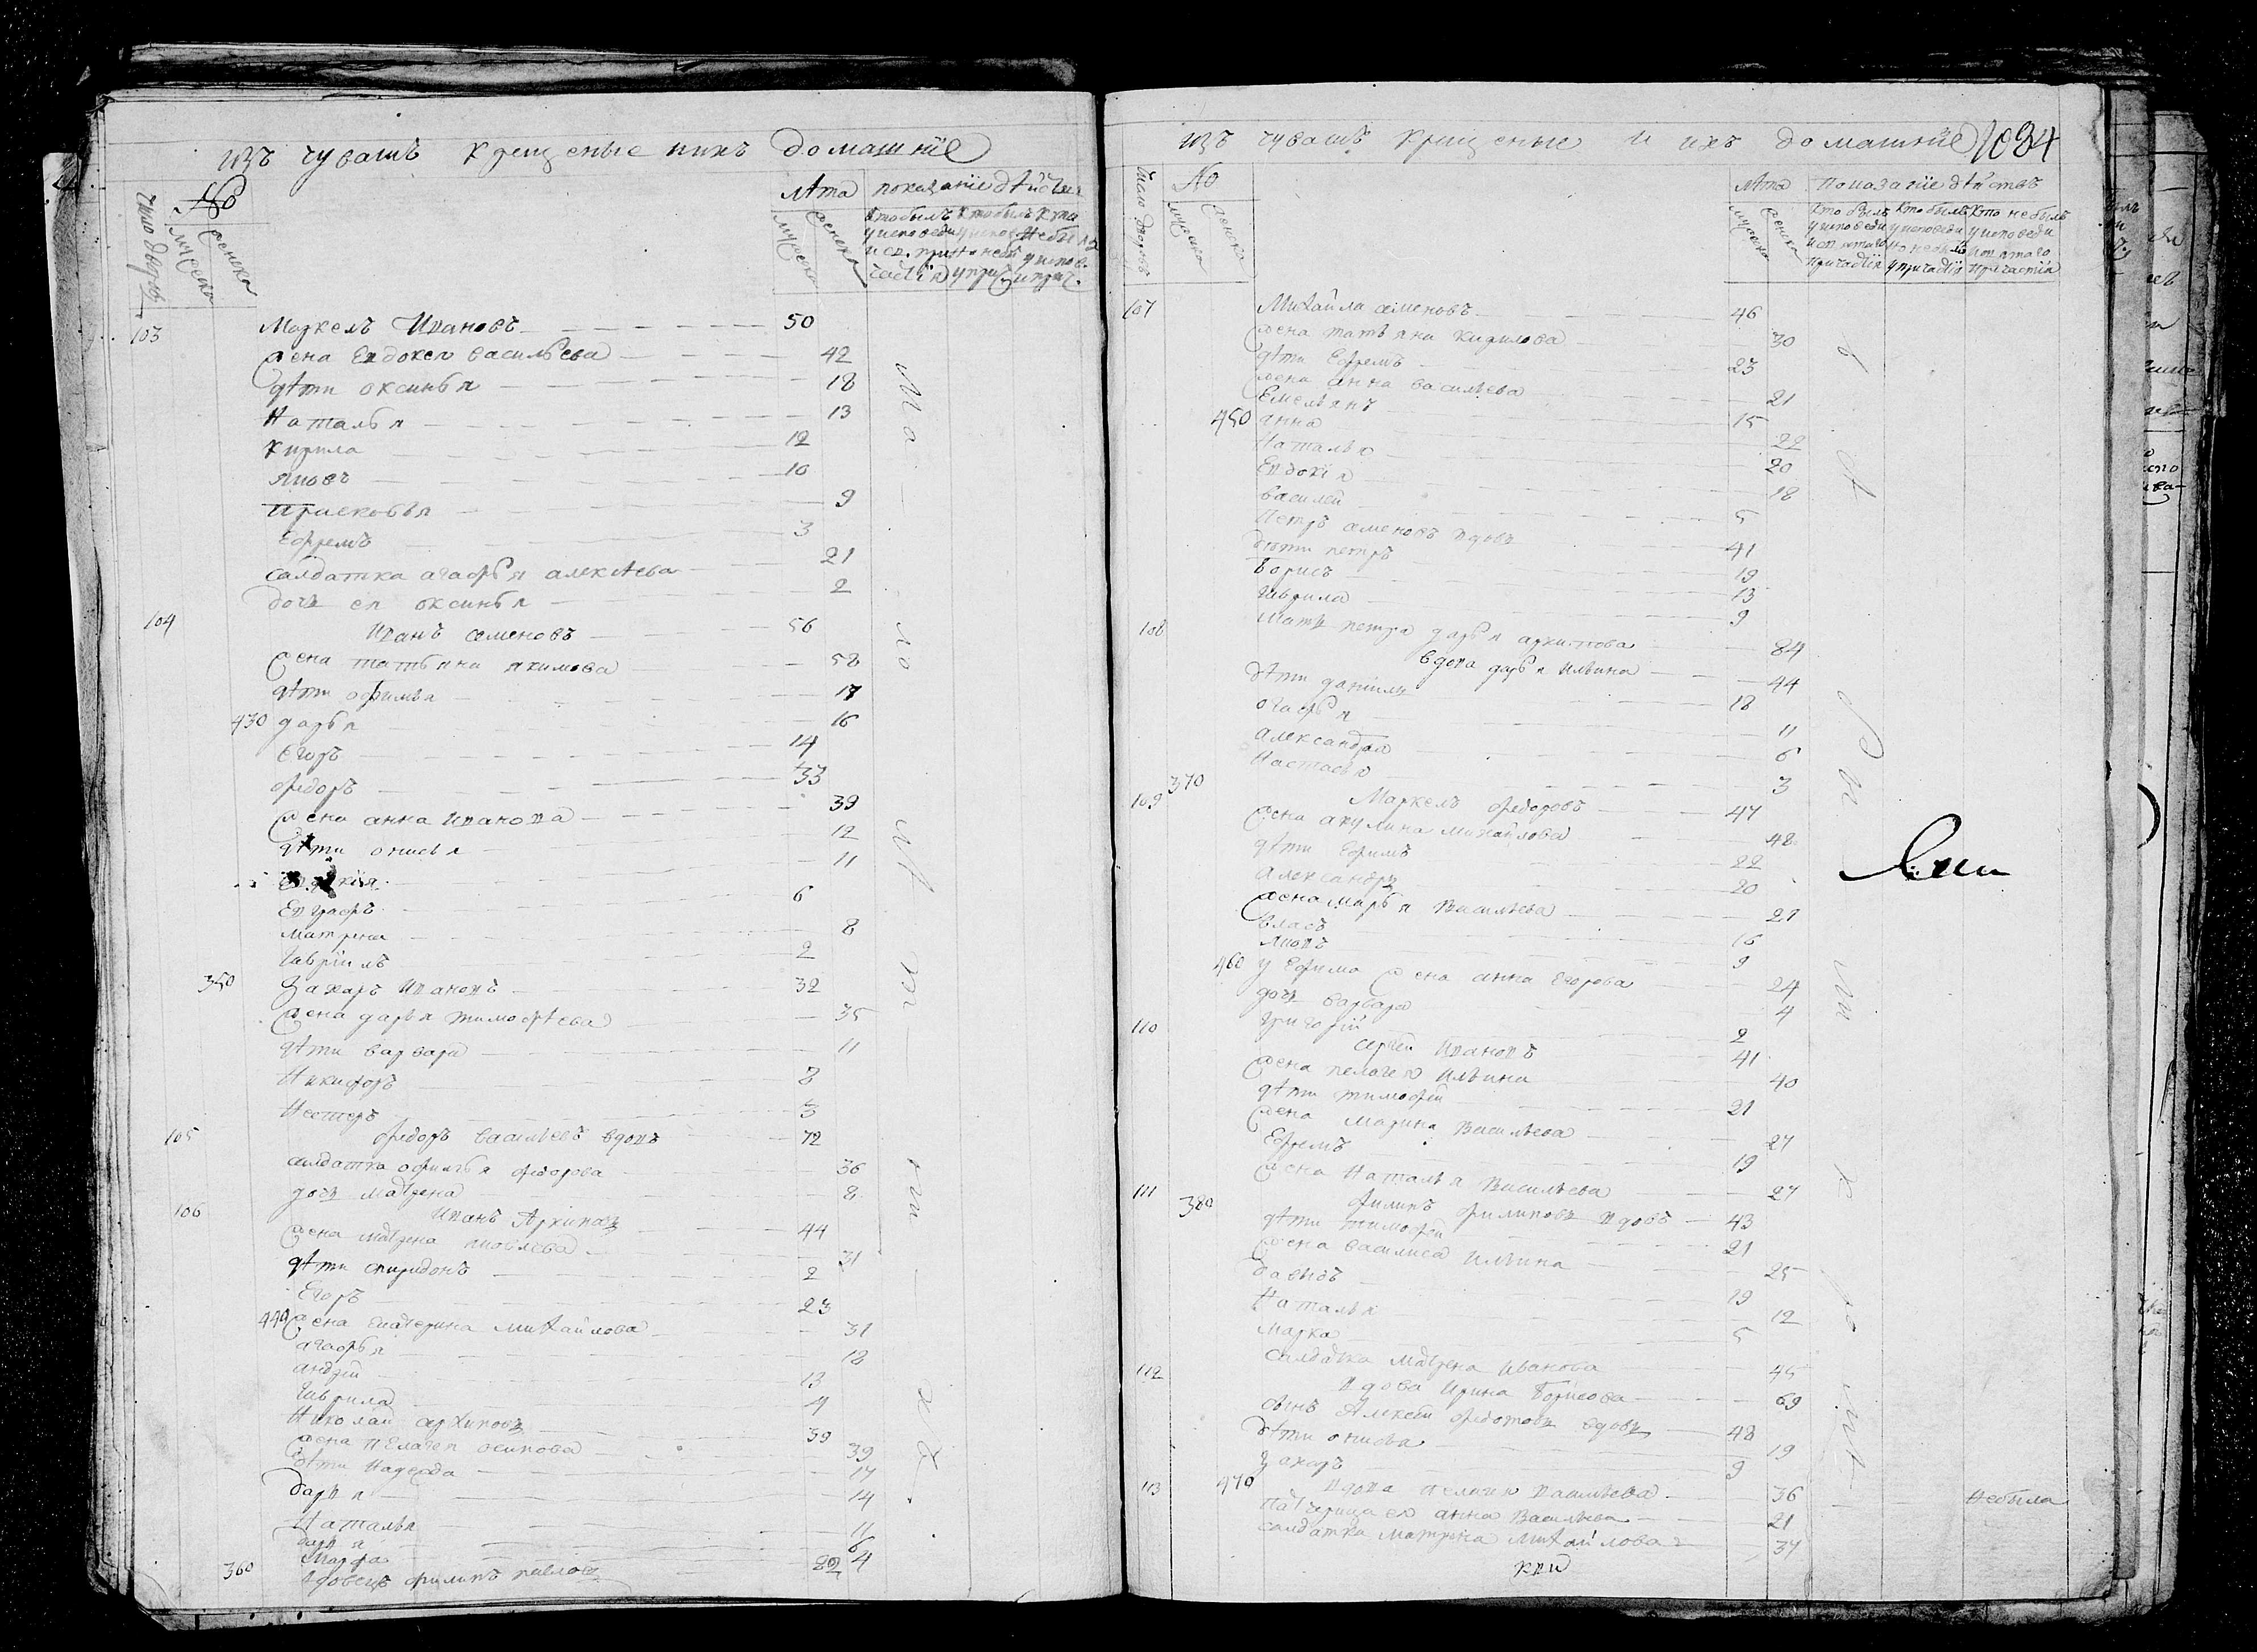 изъ чувашъ крещеные и ихъ домашнїе
число дворов.
№
мужеска
женска
лѣта
мужеска
женска
показанїе дѣйства
103 Маркелъ Ивановъ 50
жена Евдокея васильева 42
дѣти оксинья 18
Наталья 13
кирила 12
яковъ 10
прасковья 9
Ефремъ 3
салдатка агафья алексѣева 21
дочь ея оксинья 2
104 Иванъ семеновъ 56
жена татьяна якимова 58
дѣти офимья 17
430 дарья 16
егоръ 14
федоръ 33
жена анна Иванова 39
дѣти онисья 12
11
Евграфъ 6
матрена 8
гаврїилъ 2
350 Захаръ Ивановъ 32
жена дарья тимофѣева 35
дѣти варвара 11
Никифоръ 8
Нестеръ 3
105 федоръ васильевъ вдовъ 72
салдатка офимья федорова 36
дочь матрена 8
106 Иванъ Архиповъ 44
жена матрена яковлева 31
дѣти спиридонъ 2
Егоръ 23
440 жена екатерина михайлова 31
агафья 18
андрей 13
гаврила 4
Николай архиповъ 39
жена пелагея осипова 39
дѣти надежда 17
дарья 14
Наталья 11
дарья 6
марфа 4
360 вдовецъ филипъ павловъ 82
изъ чувашъ крещеные и ихъ домашнїе 1034
число дворовъ
№
мужеска
женска
лѣта
мужеска
женска
Показанїе дѣйствъ
кто былъ у исповеди и св. святаго причастїя
кто былъ у исповеди но не былъ у причастїя
кто не былъ у исповеди и святаго причастїя
107 Михайла семеновъ 46
жена татьяна кирилова 30
дѣти Ефремъ 23
жена анна васильева 21
Емельянъ 15
450 анна 22
Наталья 20
Евдокїя 18
василей 5
Петръ семеновъ вдовъ 41
дѣти петръ 19
борисъ 13
гаврила 9
мать петра дарья архипова 84
108 вдова дарья ильина 44
дѣти данїилъ 18
агафья 11
александра 6
настасья 3
109 370 Маркелъ федоровъ 47
жена акулина михайлова 48
дѣти Ефимъ 22
александръ 20
жена марья васильева 21
власъ 16
яковъ 9
460 у Ефима жена анна егорова 24
дочь варвара 4
григорїй 2
110 сергей Ивановъ 41
жена пелагея ильина 40
дѣти тимофей 21
жена марина васильева 27
Ефремъ 19
жена Наталья васильева 27
111 380 филипъ филиповъ вдовъ 43
дѣти тимофей 21
жена василиса ильина 25
давыдъ 19
Наталья 12
марка 5
салдатка матрена иванова 45
112 вдова Ирина борисова 69
сынъ Алексей федотовъ вдовъ 48
дѣти онисья 19
захаръ 9
113 470 вдова пелагея васильева 36 Небыла
падчерица ея анна васильева 21
салдатка матрена михайлова 34